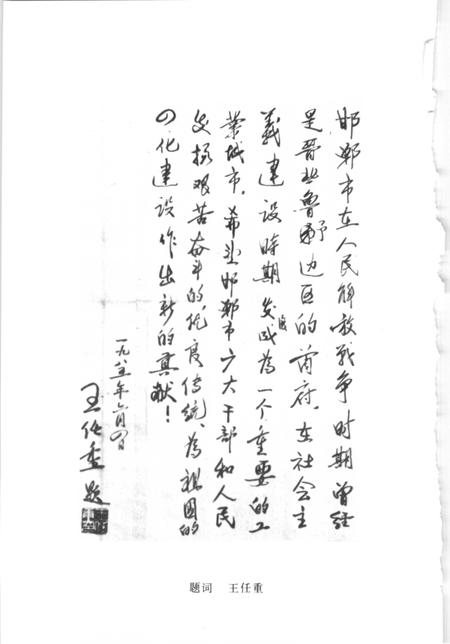 邯郸市在人民解放战争时期曾经
是晋冀鲁豫边区的首府，在社会主
义建设时期发展成为一个重要的工
业城市，希望邯郸市广大干部和人民
发扬艰苦奋斗的优良传统，为祖国的
四化建设作出新的贡献！
一九八五年六月四日
王任重题
题词 王任重